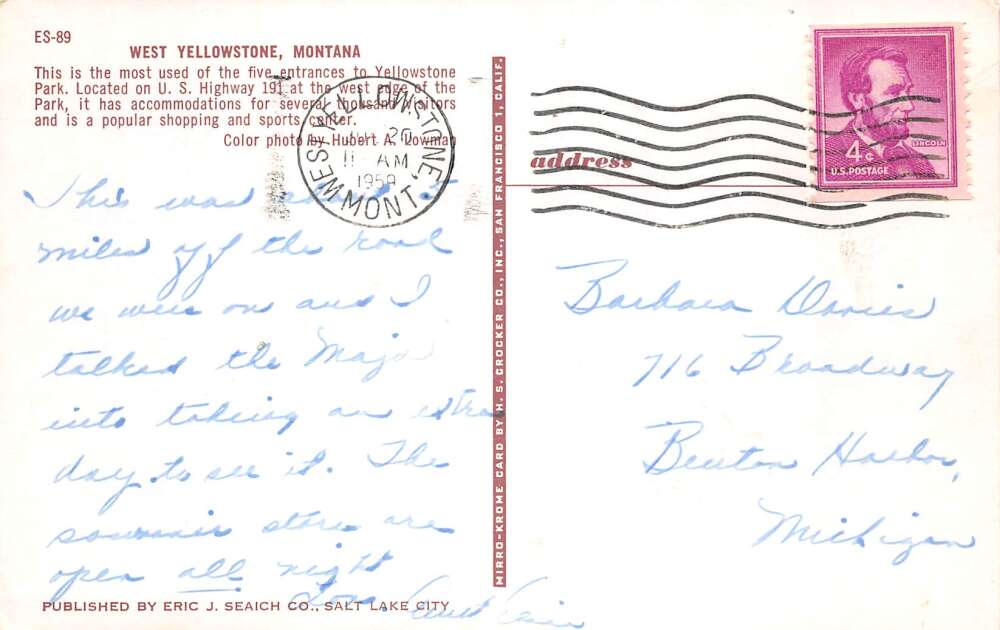 ES-89
WEST YELLOWSTONE, MONTANA
This is the most used of the five entrances to Yellowstone
Park. Located on U. S. Highway 191 at the west edge of the
Park, it has accommodations for several thousand visitors
and is a popular shopping and sports center.
Color photo by Hubert A. Lowman
WEST YELLOWSTONE,
20
11 AM
1959
MONT.
This was
miles off the road
we were on and I
talked the Major
into taking an extra
day to see it. The
souvenir store are
open all night
Love. Aunt
PUBLISHED BY ERIC J. SEAICH CO., SALT LAKE CITY
MIRRO-KROME CARD BY H. S. CROCKER CO., INC., SAN FRANCISCO 1, CALIF.
address
LINCOLN
4c
U.S. POSTAGE
Barbara Davies
716 Broadway
Benton Harbor,
Michigan